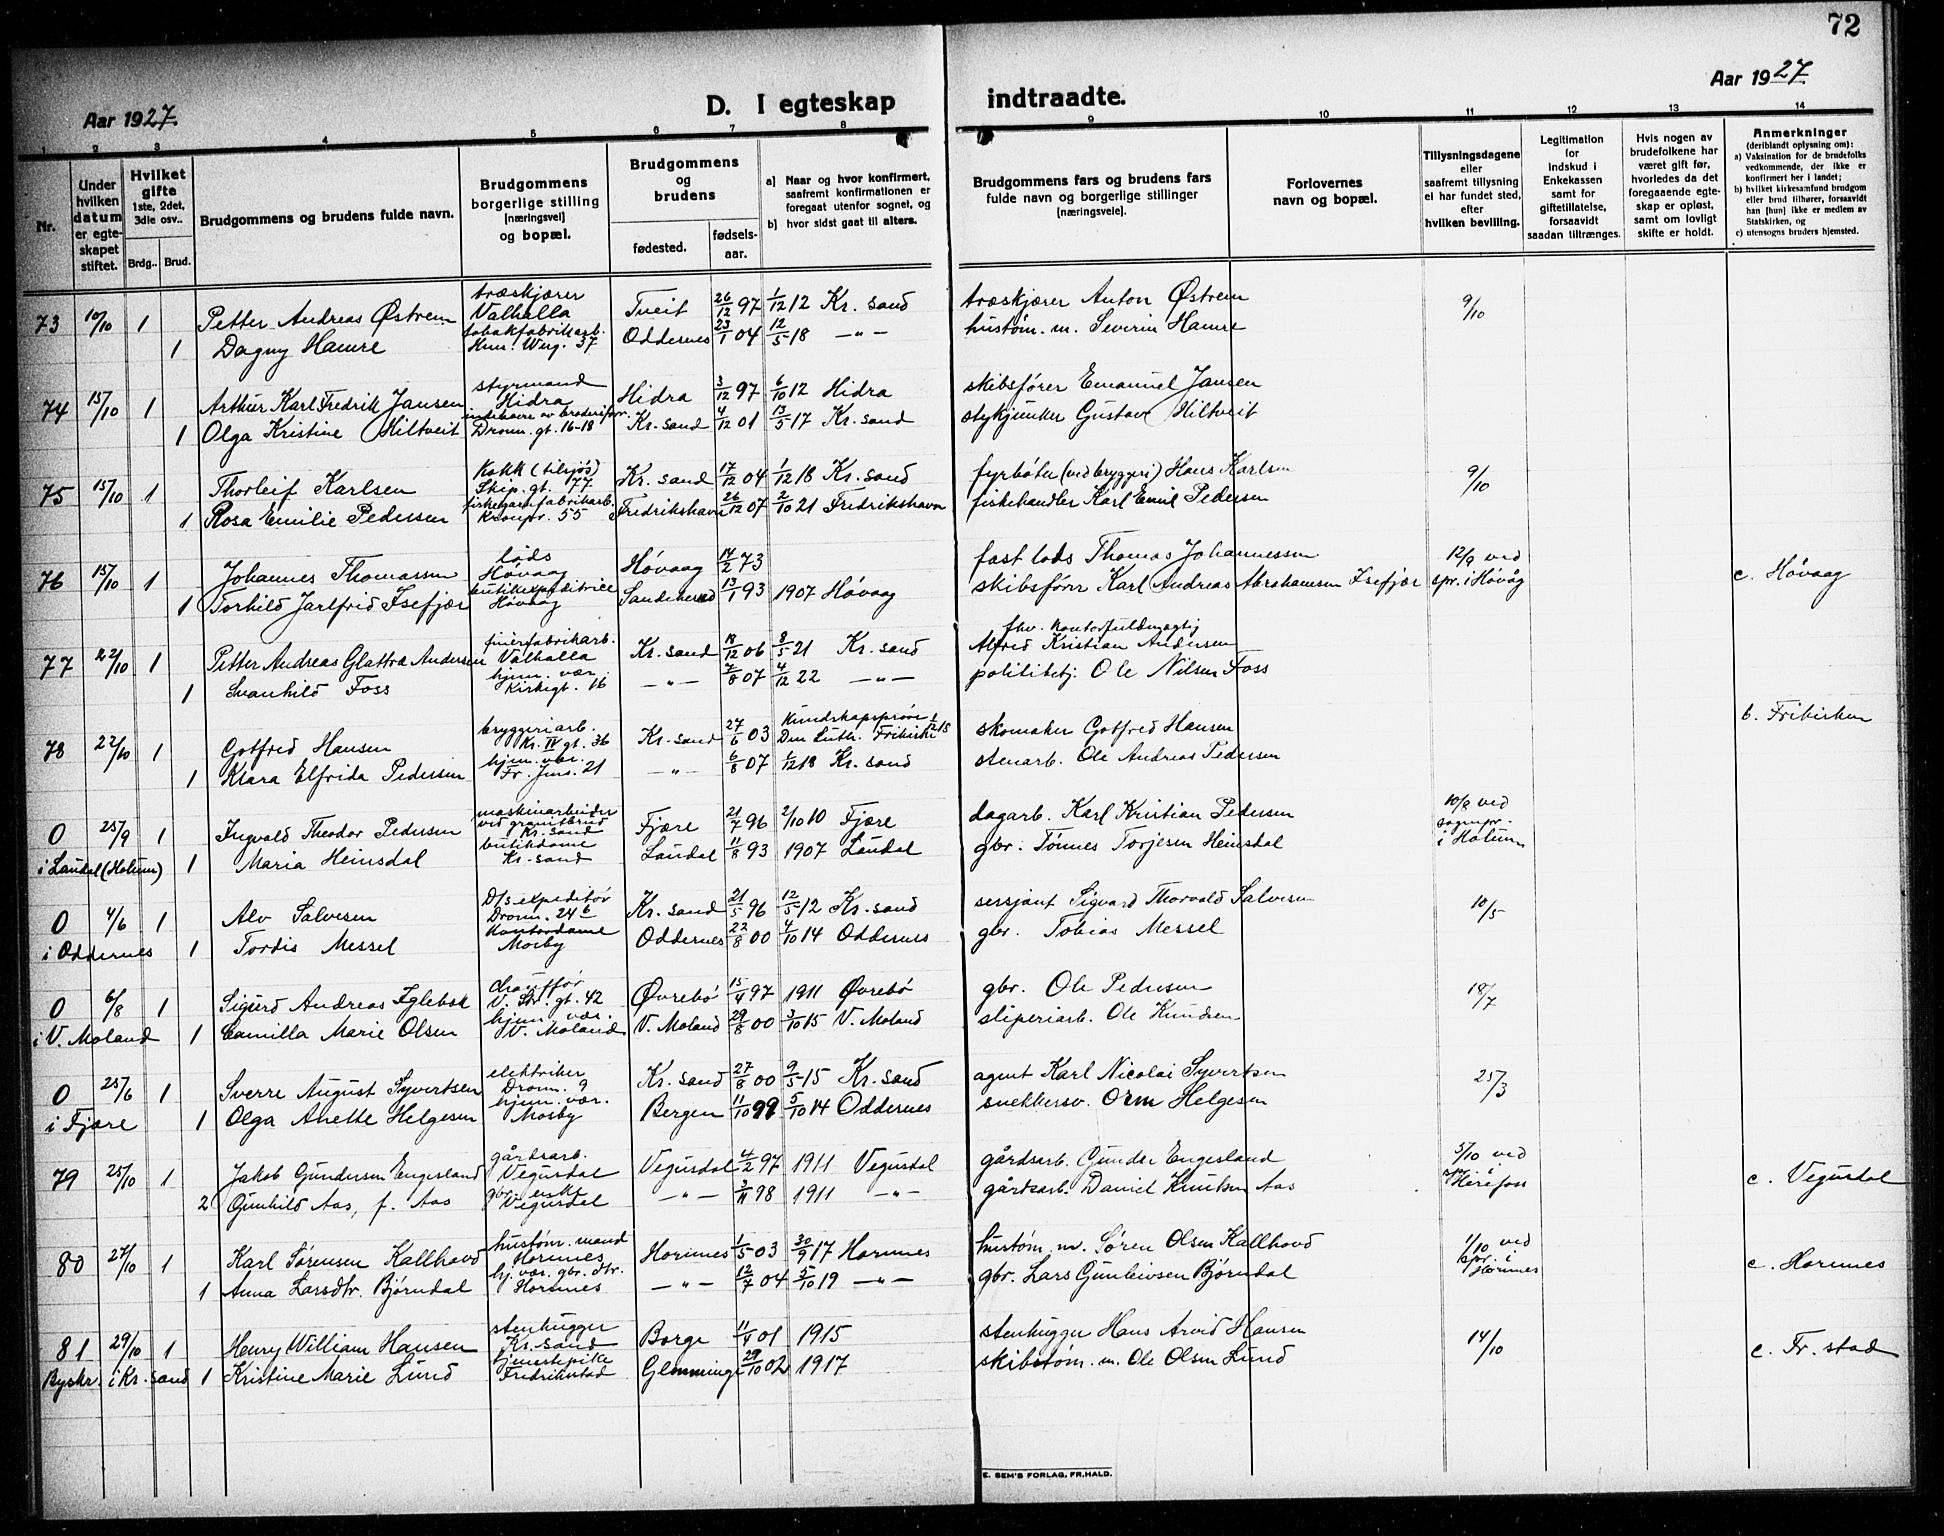 72
Aar 1927.
D. I egteskap indtraadte.
Aar 1927
1 2 3 4 5 6 7 8 9 10 11 12 13 14
Nr.
Under hvilken datum er egte-skapet stiftet.
Hvilket gifte 1ste, 2det, 3die osv..
Brdg.. Brud.
Brudgommens og brudens fulde navn.
Brudgommens borgerlige stilling (næringsvei) og bopæl.
Brudgommens og brudens
fødested. fødsels-aar.
a) Naar og hvor konfirmert, saafremt konfirmationen er foregaat utenfor sognet, og
b) hvor sidst gaat til alters.
Brudgommens fars og brudens fars fulde navn og borgerlige stillinger (næringsveie).
Forlovernes navn og bopæl.
Tillysningsdagene eller saafremt tillysning ei har fundet sted, efter hvilken bevilling.
Legitimation for indskud i Enkekassen samt for giftetillatelse, forsaavidt saadan tiltrænges.
Hvis nogen av brudefolkene har været gift før, hvorledes da det foregaaende egte-skap er opløst, samt om lovligt skifte er holdt.
Anmerkninger (deriblandt oplysning om):
a) Vaksination for de brudefolks vedkommende, der ikke er konfirmert her i landet;
b) hvilket kirkesamfund brudgom eller brud tilhører, forsaavidt han [hun] ikke er medlem av Statskirken, og
c) utensogns bruders hjemsted.
73 10/10 1 Petter Andreas Østrem træskjærer Valhalla Tveit 26/12 97 1/12 12 Kr. sand træskjærer Anton Østrem 9/10
1 Dagny Hamre tobakfabrikarb. Hnr. Werg. 37 Oddernes 23/1 04 12/5 18 —"— hustøm. m. Severin Hamre
74 15/10 1 Arthur Karl Fredrik Jansen styrmand Hidra Hidra 3/12 97 6/10 12 Hidra skibsfører Emanuel Jansen
1 Olga Kristine Hiltveit indehaver av broderiforr. Dronn. gt. 16-18 Kr. sand 4/12 01 13/5 17 Kr. sand stykjunker Gustav Hiltveit
75 15/10 1 Thorleif Karlsen Kokk (tilsjøs) Skip. gt. 77 Kr. sand 17/12 04 1/12 18 Kr. sand fyrbøter (ved bryggeri) Hans Karlsen 9/10
1 Rosa Emilie Pedersen fiskegarnfabrikarb. Kronpr. 55 Fredrikshavn 26/12 07 2/10 21 Fredrikshavn fiskehandler Karl Emil Pedersen
76 15/10 1 Johannes Thomassen lods Høvaag Høvaag 14/2 73 fast lods Thomas Johannessen 12/9 ved spr. i Høvåg c. Høvaag
1 Torhild Jarlfrid Isefjær butikexpeditrice Høvaag Sandeherred 13/1 93 1907 Høvaag skibsfører Karl Andreas Abrahamsen Isefjær
77 22/10 1 Petter Andreas Glattre Andersen finerfabrikarb. Valhalla Kr. sand 18/12 06 8/5 21 Kr. sand fhv. kontorfuldmægtig Alfred Kristian Andersen
1 Svanhild Foss hjem. vær. Kirkegt. 16 —"— 7/8 07 4/12 22 —"— politibetj. Ole Nilsen Foss
78 22/10 1 Gotfred Hansen bryggeriarb. Kr. IV gt. 36 Kr. sand 27/6 03 Kundskapsprøve 1/12 18 Den Luth. Frikirke skomaker Gotfred Hansen b. Frikirken
1 Klara Elfrida Pedersen hjem. vær. Fr. Jens. 21 —"— 6/8 07 1/12 18 Kr. sand stenarb. Ole Andreas Pedersen
0 25/9 1 Ingvald Theodor Pedersen maskinarbeider ved granitbrud Kr. sand Fjære 21/7 96 2/10 10 Fjære dagarb. Karl Kristian Pedersen 10/9 ved sognepr. i Holum
i Laudal (Holum) 1 Maria Heinsdal butikdame Kr. sand Laudal 11/8 93 1907 Laudal gbr. Tønnes Torjesen Heinsdal
0 4/6 1 Alv Salvesen D/s expeditør Dronn. 24 b Kr. sand 21/5 96 12/5 12 Kr. sand sersjant Sigvard Thorvald Salvesen 10/5
i Oddernes 1 Tordis Messel kontordame Mosby Oddernes 22/8 00 4/10 14 Oddernes gbr. Tobias Messel
0 6/8 1 Sigurd Andreas Iglebæk chauffør V. Str. gt. 42 Øvrebø 15/4 97 1911 Øvrebø gbr. Ole Pedersen 18/7
i V. Moland 1 Camilla Marie Olsen hjem. vær. V. Moland V. Moland 29/8 00 3/10 15 V. Moland sliperiarb. Ole Knudsen
0 25/6 1 Sverre August Syvertsen elektriker Dronn. 9 Kr. sand 27/8 00 9/5 15 Kr. sand agent Karl Nicolai Syvertsen 25/3
i Fjære 1 Olga Anette Helgesen hjem. vær. Mosby Bergen 11/10 99 5/10 14 Oddernes snekkersv. Orm Helgesen
79 25/10 1 Jakob Gundersen Engesland gårdsarb. Vegusdal Vegusdal 4/2 97 1911 Vegusdal gårdsarb. Gunder Engesland 5/10 ved spr. i Herefoss c. Vegusdal
2 Gunhild Aas, f. Aas gbr. enke Vegusdal —"— 3/11 98 1911 —"— gårdsarb. Daniel Knutsen Aas
80 27/10 1 Karl Sørensen Kallhovd hustøm. mand Hornnes Hornnes 1/5 03 30/9 17 Hornnes hustøm. m. Søren Olsen Kallhovd 1/10 ved spr. i Hornnes c. Hornnes
1 Anna Larsdtr. Bjørndal hj. vær. gbr. dtr. Hornnes —"— 12/7 04 5/10 19 —"— gbr. Lars Gunleivsen Bjørndal
81 29/10 1 Henry William Hansen stenhugger Kr. sand Borge 11/4 01 1915 stenhugger Hans Arvid Hansen 14/10 c. Fr. stad
Byskr. i Kr. sand 1 Kristine Marie Lund tjenestepike Fredrikstad Glemminge 29/10 02 1917 skibstøm. m. Ole Olsen Lund
E. SEM'S FORLAG, FR.HALD.